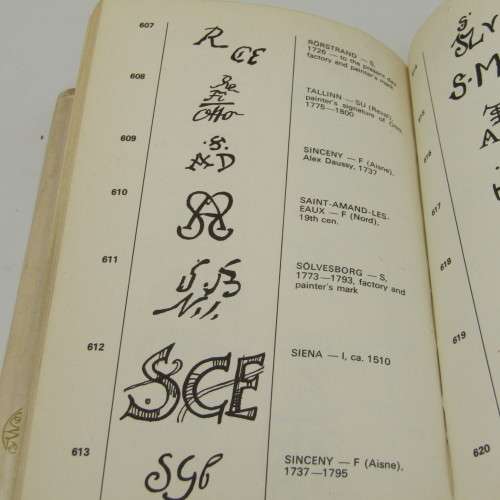 607
R
CE
RÖRSTRAND — S,
1726 — to the present day
factory and painter's mark
608
Re
Fi
Otto
TALLINN — SU (Reval),
painter's signature of
1775—1800
609
S.
AD
SINCENY — F (Aisne),
Alex Daussy, 1737
610
SAINT-AMAND-LES-
EAUX — F (Nord),
19th cen.
611
SÖLVESBORG — S,
1773—1793, factory and
painter's mark
612
SCE
SIENA — I, ca. 1510
613
SGb
SINCENY — F (Aisne),
1737—1795
S.
S.M
615
616
617
618
619
620